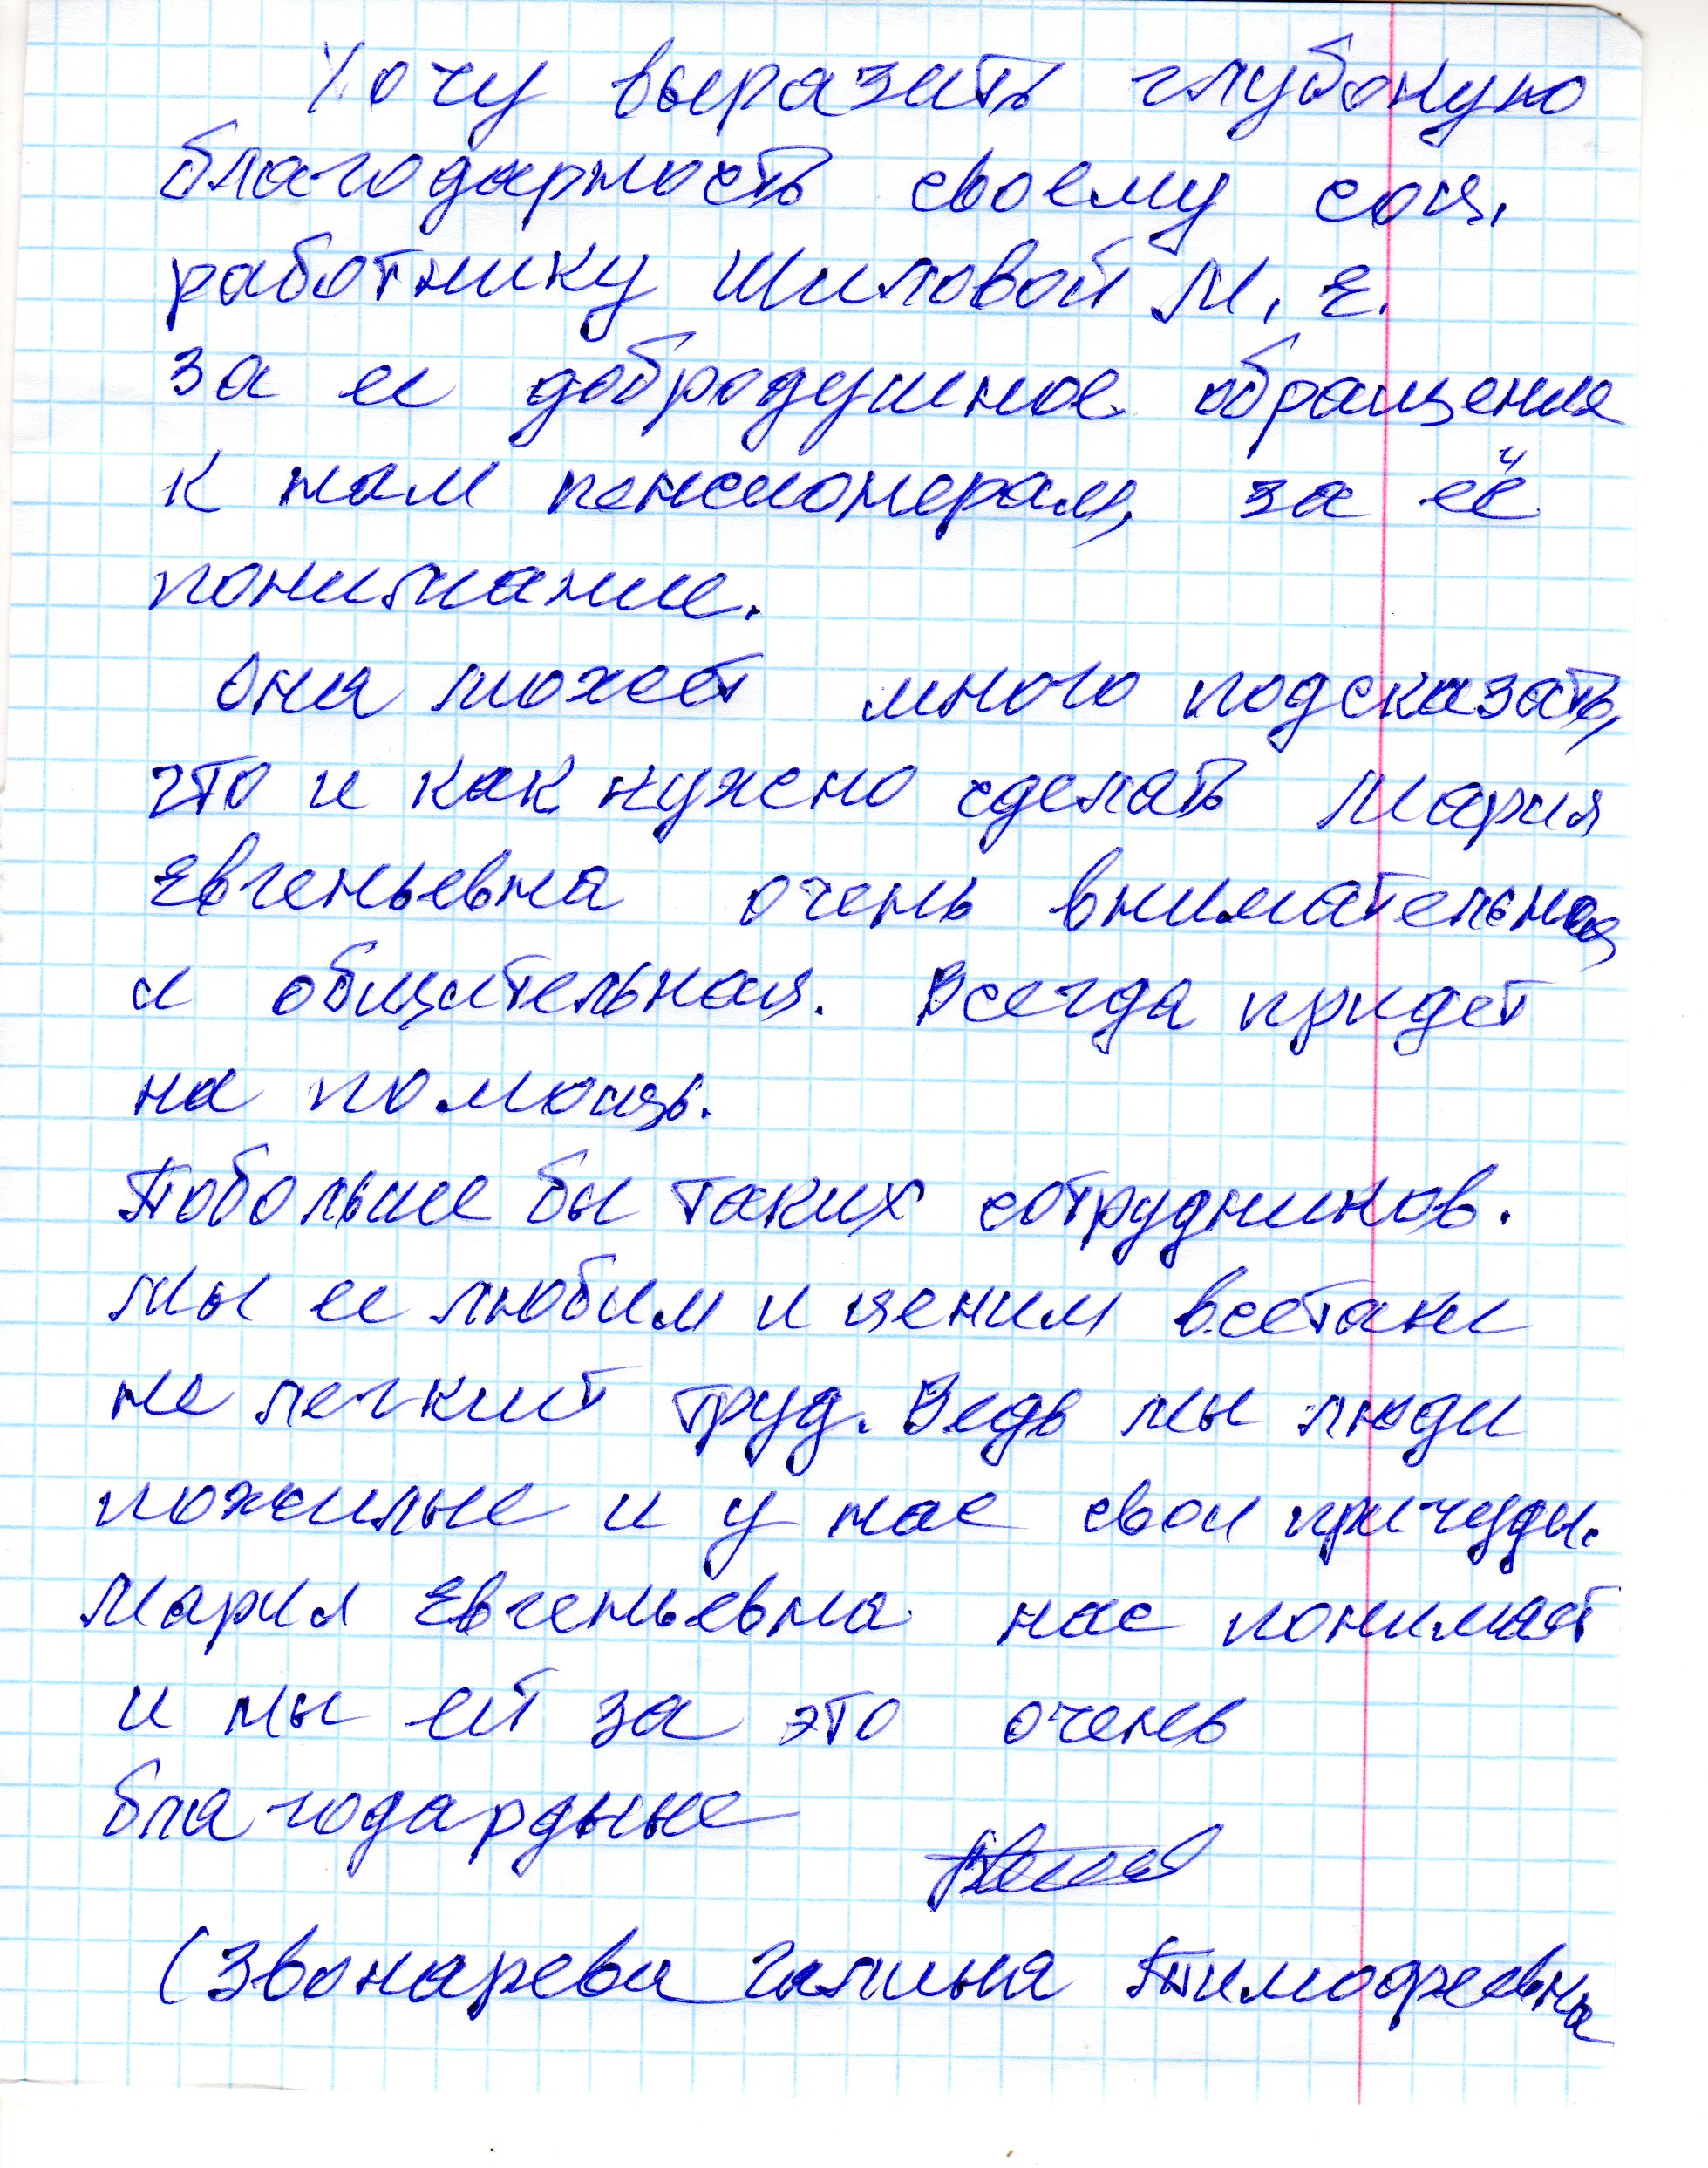 Хочу выразить глубокую
благодарность своему соц.
работнику Шиловой М. Е.
за ее добродушное обращение
к нам пенсионерам, за её
понимание.
Она может много подсказать,
что и как нужно сделать Мария
Евгеньевна очень внимательная
и общительная. Всегда придет
на помощь.
Побольше бы таких сотрудников.
Мы ее любим и ценим всетаки
не легкий труд. Ведь мы люди
пожилые и у нас свои причуды.
Мария Евгеньевна нас понимает
и мы ей за это очень
благодардные
(Звонарева Галина Тимофеевна